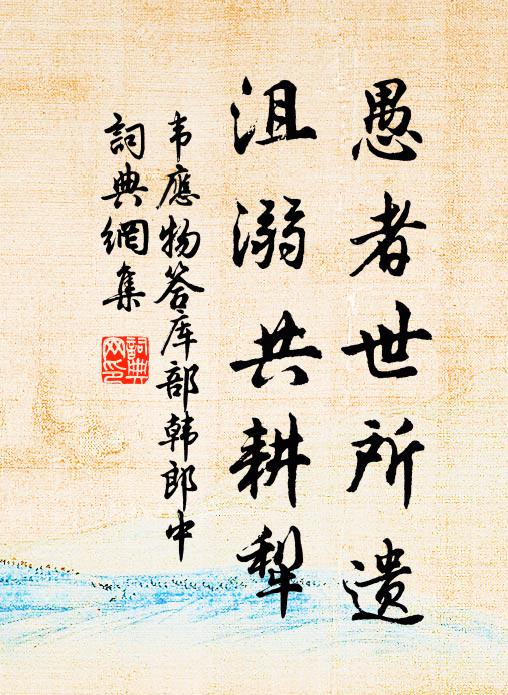 愚者世所遗
沮溺共耕犁
韦應物答库部韩郎中
詞典網集
詞典网印